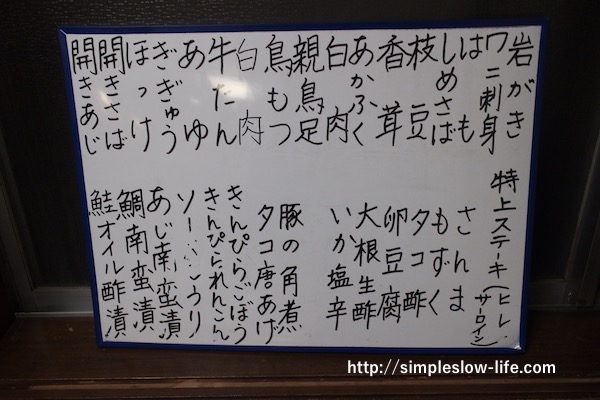 岩がき
ワニ刺身
はも
しめさば
枝豆
香茸
あかふく
白肉
親鳥足
鳥もつ
白肉
牛たん
あゆ
ぎぎゅう
ほっけ
開きさば
開きあじ
特上ステーキ(ヒレ・サーロイン)
さんま
もずく
タコ酢
卵豆腐
大根生酢
いか塩辛
豚の角煮
タコ唐あげ
きんぴらごぼう
きんぴられんこん
あじ南蛮漬
鯛南蛮漬
鮭オイル酢漬
http://simpleslow-life.com